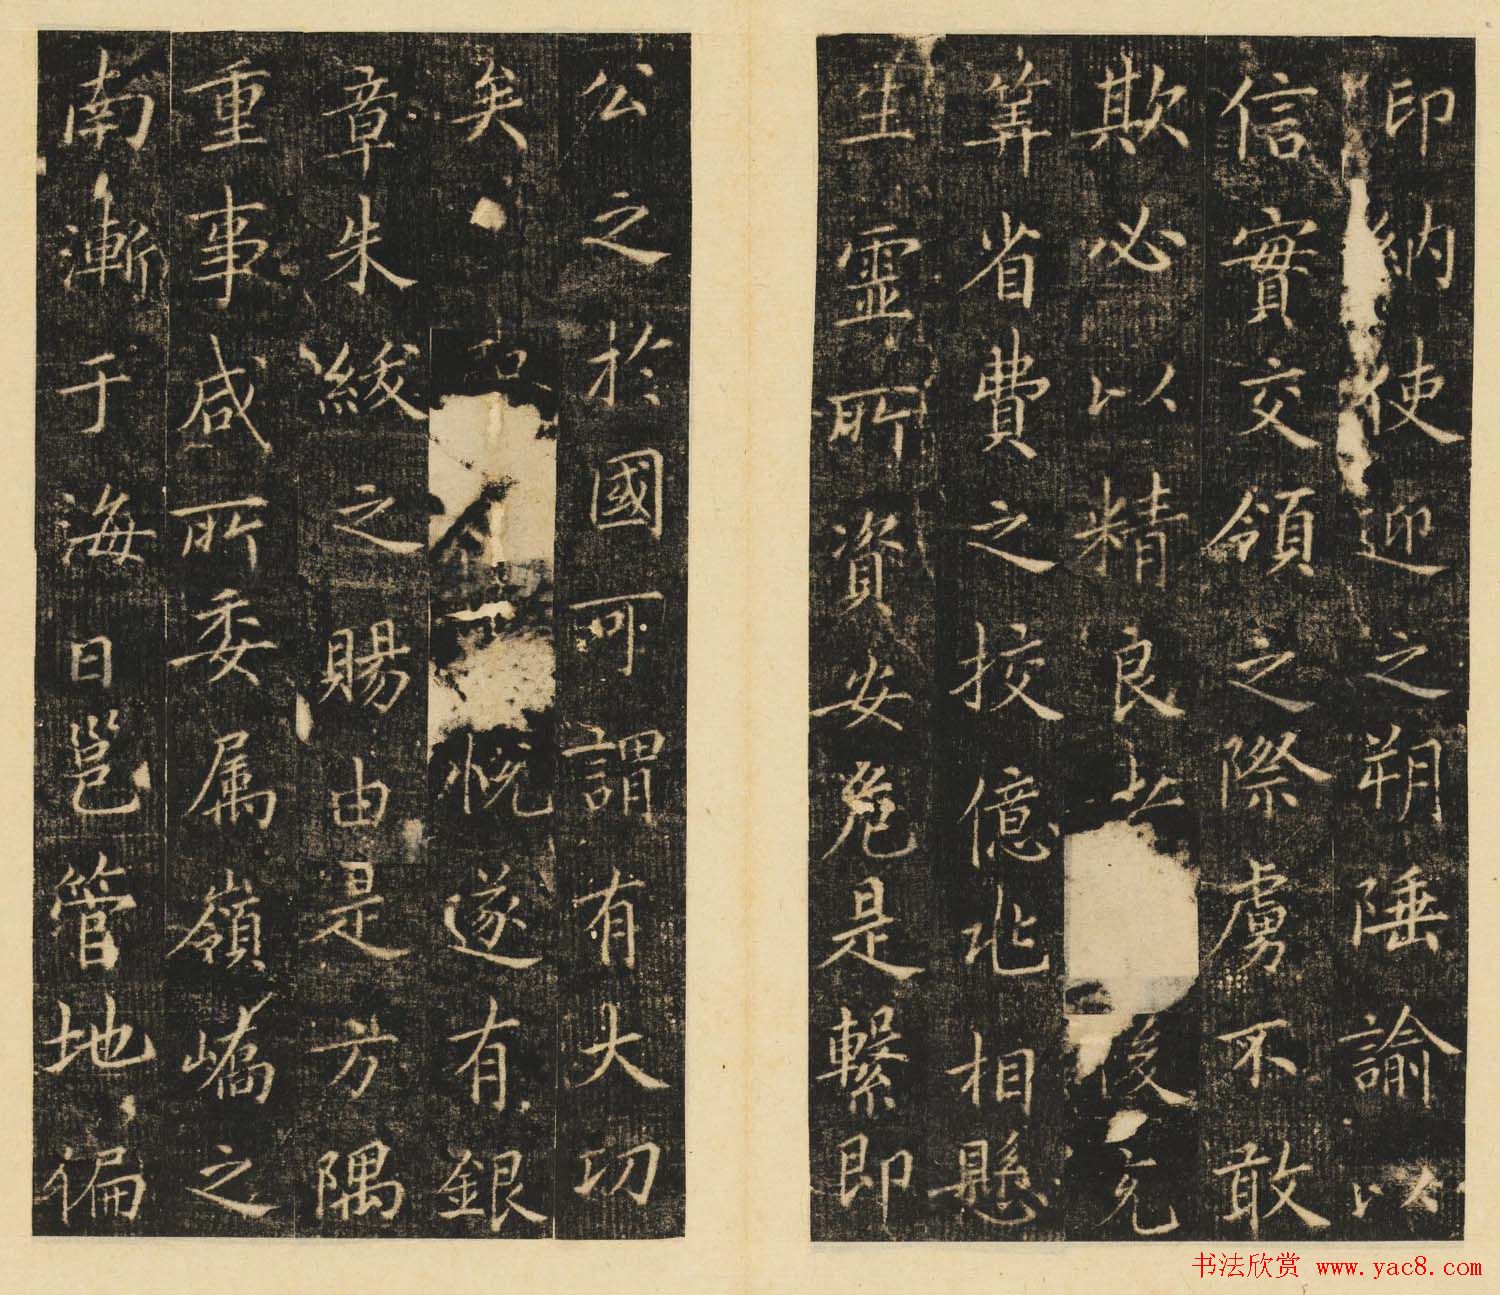 印納使迎之朔陲諭以
信實交領之際虜不敢
欺必以精良後充
筭省費之挍億兆相懸
生靈所資安危是繫即
公之於國可謂有大功
矣慨遂有銀
章朱紱之賜由是方隅
重事咸所委属嶺嶠之
南漸于海日邕管地偏
书法欣赏 www.yac8.com